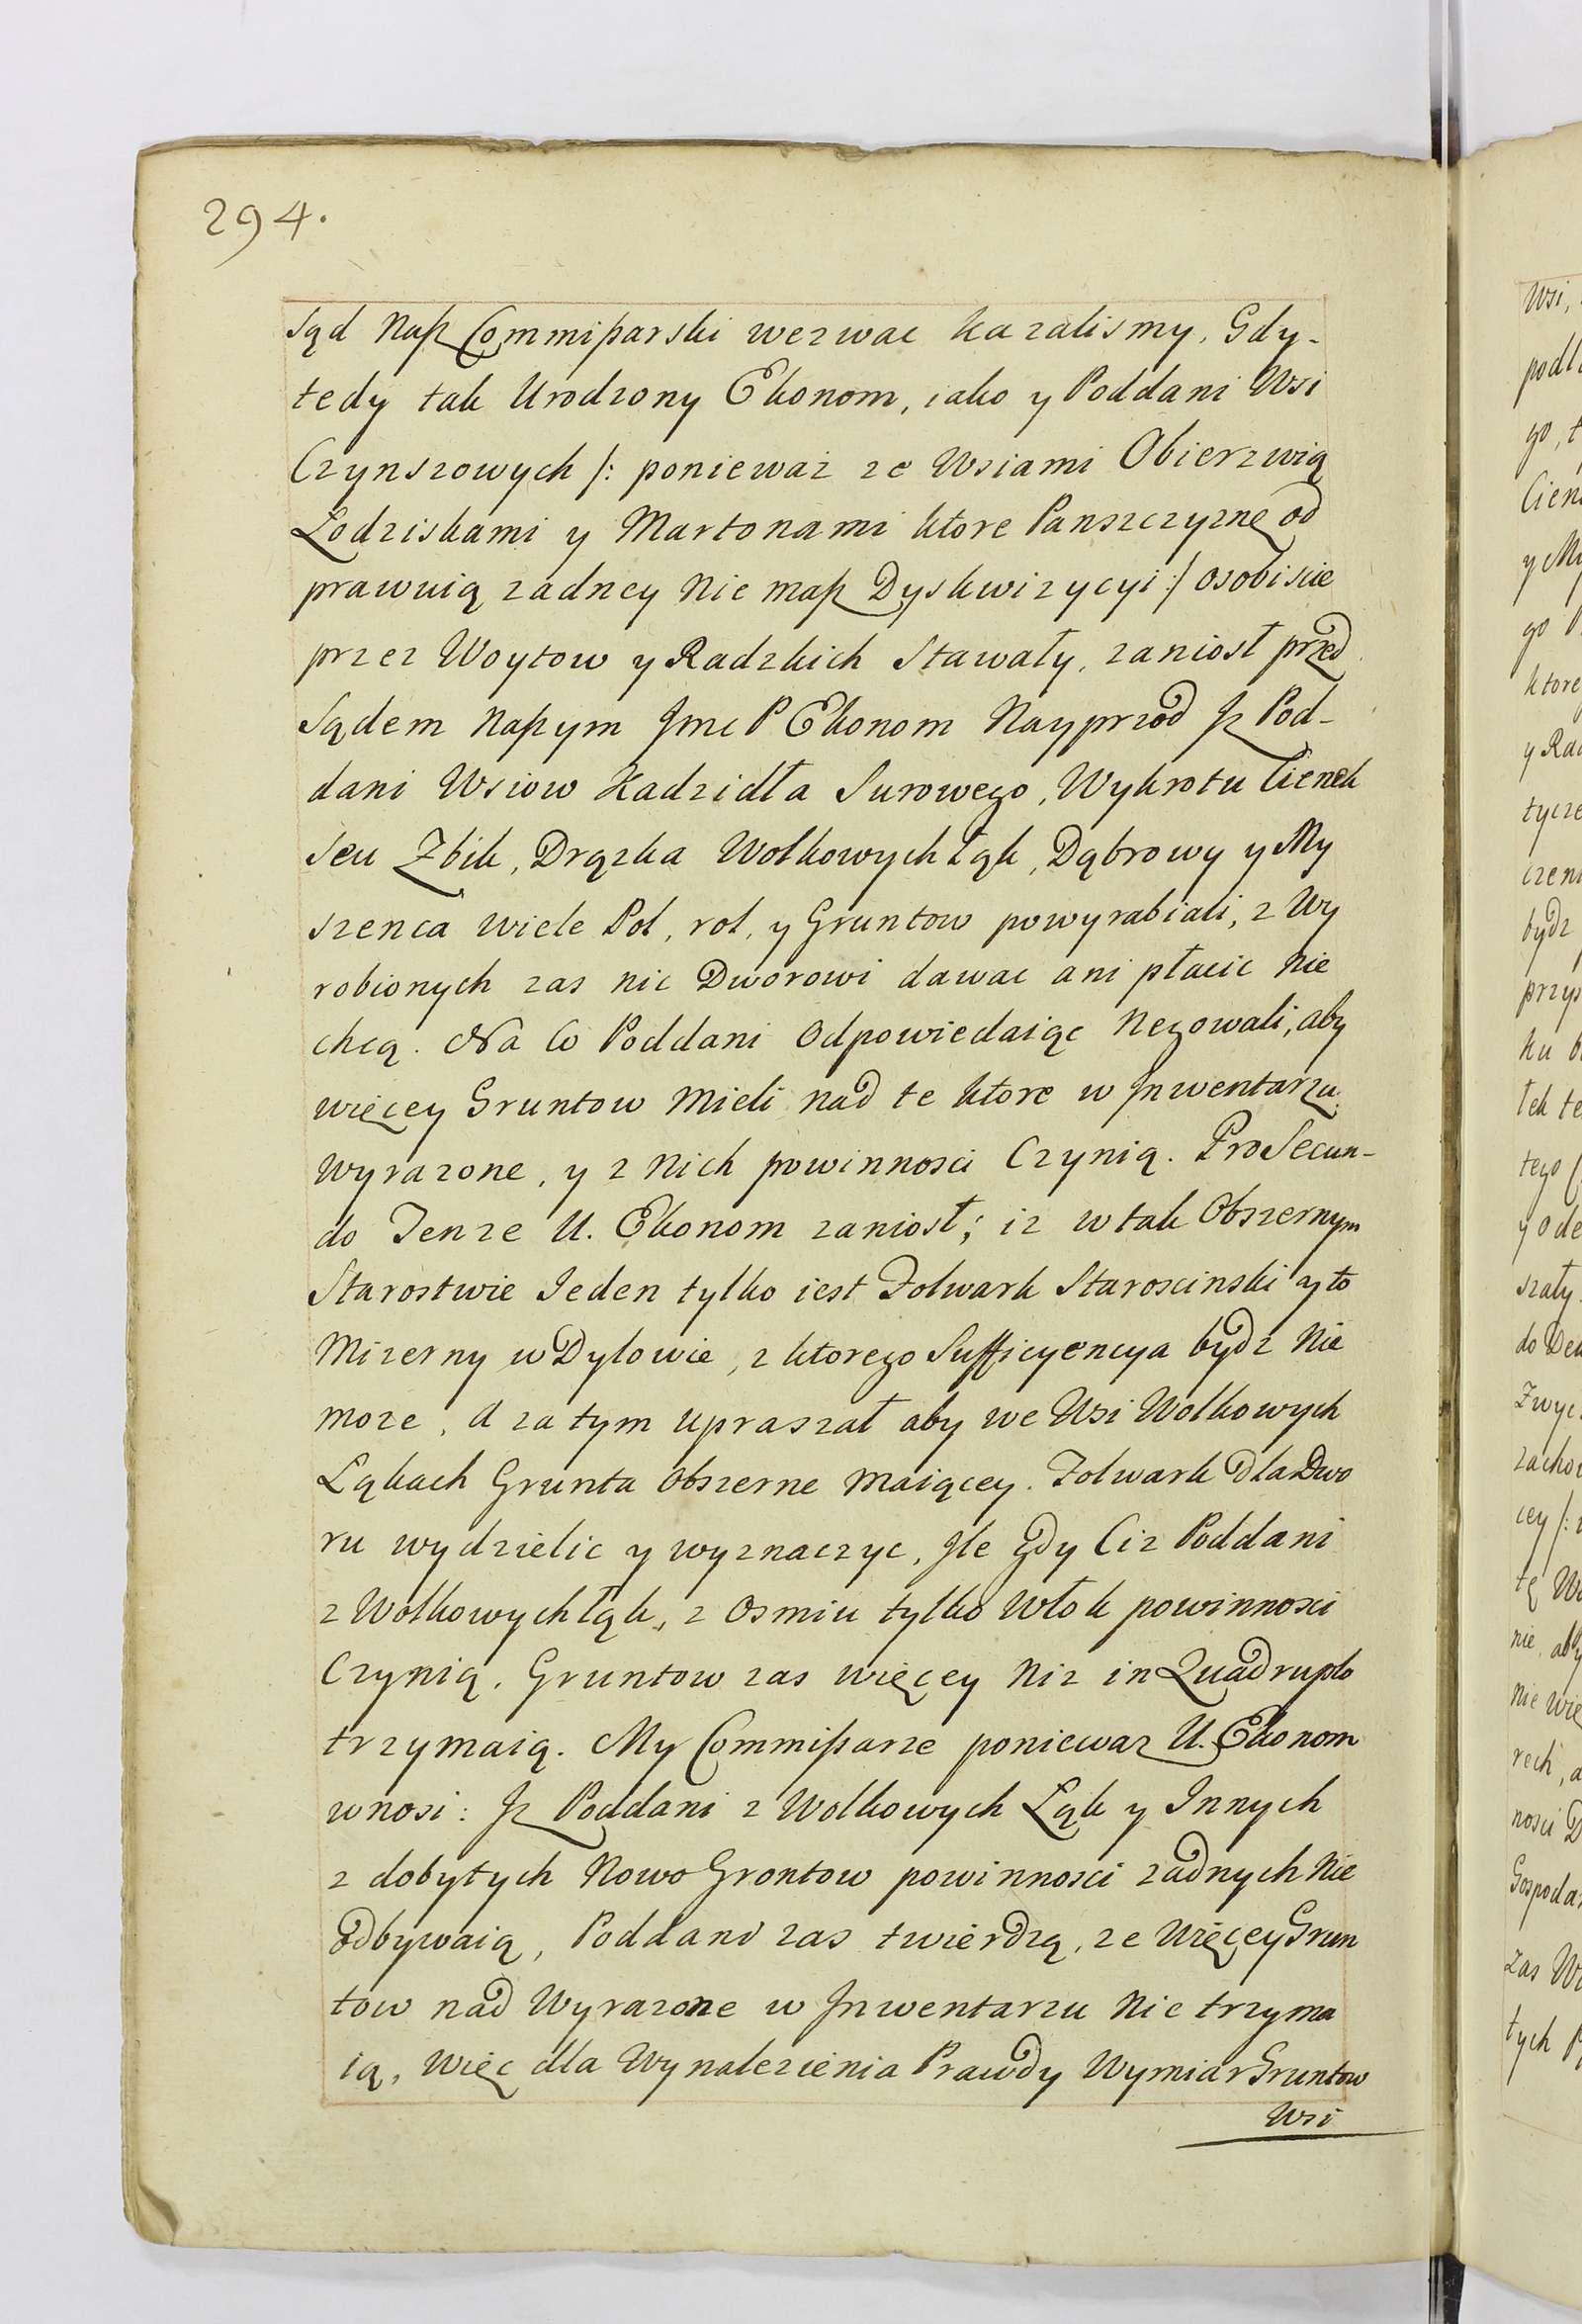 294.
Sąd Naß Commißarski wezwac kazalismy, Gdy-
tedy tak Urodzony Ekonom, iako y Poddani Wsi
Czynszowych /: ponieważ ze Wsiami Obierzwią
Łodziskami y Martonami ktore Panszczyznę od
prawuią zadney Nie maß Dyskwizycyi :/ osobiscie
przez Woytow y Radzkich Stawały, zaniosł przed
Sądem Naßym Jmc P Ekonom Nayprzod Jz Pod-
dani Wsiow Kadzidła Surowego, Wykrotu Cienek
seu Zbik, Drązka Wolkowych Łąk, Dąbrowy y My
szenca wiele Pol, rol, y Gruntow powyrabiali, z Wy
robionych zas nic Dworowi dawac ani płacic Nie
chcą. Na Co Poddani Odpowiedaiąc Negowali, aby
więcey Gruntow Mieli nad te ktore w Jnwentarzu
wyrazone, y z Nich powinnosci Czynią. Pro Secun-
do Tenze U. Ekonom zaniosł; iz w tak Obszernym
Starostwie Jeden tylko iest Folwark Staroscinski y to
Mizerny w Dylowie, z ktorego Sufficyencya bydz Nie
moze, A za tym upraszał aby we Wsi Wolkowych
Łąkach Grunta Obszerne Maiącey. Folwark dla Dwo
ru wydzielic y wyznaczyc, Jle gdy Ciz Poddani
z Wolkowych łąk, z Osmiu tylko Włok powinnosci
Czynią, Gruntow zas więcey Niz in Quadruplo
trzymaią. My Commißarze poniewaz U. Ekonom
wnosi: Jz Poddani z Wolkowych Łąk y Innych
z dobytych Nowo Grontow powinnosci zadnych Nie
odbywaią, Poddani zas twierdzą, ze Więcey Grun
tow nad Wyrazone w Jnwentarzu Nie trzyma
ią, Więc dla Wynalezienia Prawdy Wymiar Gruntow
Wsi